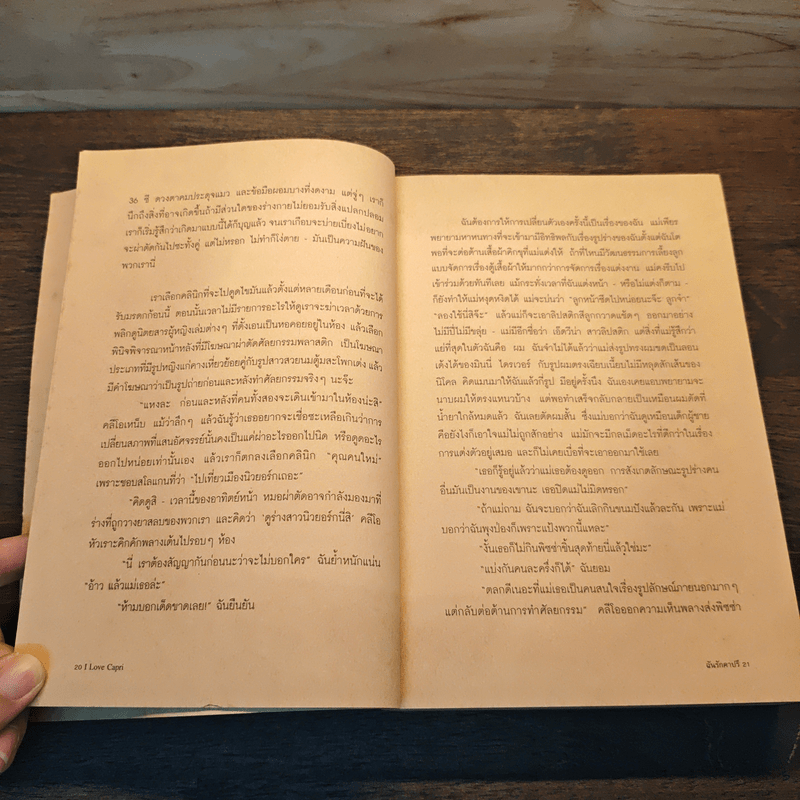 36 ซี ดวงตาคมประดุจแมว และข้อมือผอมบางที่งดงาม แต่จู่ๆ เราก็
นึกถึงสิ่งที่อาจเกิดขึ้นถ้ามีส่วนใดของร่างกายไม่ยอมรับสิ่งแปลกปลอม
เราก็เริ่มรู้สึกว่าเกิดมาแบบนี้ได้ก็บุญแล้ว จนเราเกือบจะบ่ายเบี่ยงไม่อยาก
จะผ่าตัดกันไปซะทั้งคู่ แต่ไม่หรอก ไม่ทำก็โง่ตาย - มันเป็นความฝันของ
พวกเรานี่
เราเลือกคลินิกที่จะไปดูดไขมันแล้วตั้งแต่หลายเดือนก่อนที่จะได้
รับมรดกก้อนนี้ ตอนนั้นเวลาไม่มีรายการอะไรให้ดูเราจะฆ่าเวลาด้วยการ
พลิกดูนิตยสารผู้หญิงเล่มต่างๆ ที่ตั้งเอนเป็นหอคอยอยู่ในห้อง แล้วเลือก
พินิจพิจารณาหน้าหลังที่มีโฆษณาผ่าตัดศัลยกรรมพลาสติก เป็นโฆษณา
ประเภทที่มีรูปหญิงแก่คางเหี่ยวย้อยคู่กับรูปสาวสวยนมตู้มสะโพกเต่ง แล้ว
มีคำโฆษณาว่าเป็นรูปถ่ายก่อนและหลังทำศัลยกรรมจริงๆ นะจ๊ะ
"แหงละ ก่อนและหลังที่คนทั้งสองจะเดินเข้ามาในห้องน่ะสิ"
คลีโอเหน็บ แม้ว่าลึกๆ แล้วฉันรู้ว่าเธออยากจะเชื่อซะเหลือเกินว่าการ
เปลี่ยนสภาพที่แสนอัศจรรย์นั้นคงเป็นแค่ผ่าอะไรออกไปนิด หรือดูดอะไร
ออกไปหน่อยเท่านั้นเอง แล้วเราก็ตกลงเลือกคลินิก "คุณคนใหม่"
เพราะชอบสโลแกนที่ว่า "ไปเที่ยวเมืองนิวยอร์กเถอะ"
"คิดดูสิ - เวลานี้ของอาทิตย์หน้า หมอผ่าตัดอาจกำลังมองมาที่
ร่างที่ถูกวางยาสลบของพวกเรา และคิดว่า 'ดูร่างสาวนิวยอร์กนี่สิ' คลีโอ
หัวเราะคิกคักพลางเต้นไปรอบๆ ห้อง
"นี่ เราต้องสัญญากันก่อนนะว่าจะไม่บอกใคร" ฉันย้ำหนักแน่น
"อ้าว แล้วแม่เธอล่ะ"
"ห้ามบอกเด็ดขาดเลย!" ฉันยืนยัน
20 I Love Capri
ฉันต้องการให้การเปลี่ยนตัวเองครั้งนี้เป็นเรื่องของฉัน แม่เพียร
พยายามหาหนทางที่จะเข้ามามีอิทธิพลกับเรื่องรูปร่างของฉันตั้งแต่ฉันโต
พอที่จะต่อต้านเสื้อผ้าคิกขุที่แม่แต่งให้ ถ้าที่ไหนมีวัฒนธรรมการเลี้ยงลูก
แบบจัดการเรื่องตู้เสื้อผ้าให้มากกว่าการจัดการเรื่องแต่งงาน แม่คงรีบไป
เข้าร่วมด้วยทันทีเลย แม้กระทั่งเวลาที่ฉันแต่งหน้า - หรือไม่แต่งก็ตาม -
ก็ยังทำให้แม่หงุดหงิดได้ แม่จะบ่นว่า "ลูกหน้าซีดไปหน่อยนะจ๊ะ ลูกจ๋า"
"ลองใช้นี่สิจ๊ะ" แล้วแม่ก็จะเอาลิปสติกสีลูกกวาดแช๊ดๆ ออกมาอย่าง
ไม่มีปี่ไม่มีขลุ่ย - แม่มีอีกชื่อว่า เอ็ดวีน่า สาวลิปสติก แต่สิ่งที่แม่รู้สึกว่า
แย่ที่สุดในตัวฉันคือ ผม ฉันจำไม่ได้แล้วว่าแม่ส่งรูปทรงผมขดเป็นลอน
เด้งได้ของมินนี่ ไดรเวอร์ กับรูปผมตรงเฉียบเนี้ยบไม่มีหลุดสักเส้นของ
นิโคล คิดแมนมาให้ฉันแล้วกี่รูป มีอยู่ครั้งนึง ฉันเองเคยแอบพยายามจะ
นาบผมให้ตรงแหนวบ้าง แต่พอทำเสร็จกลับกลายเป็นเหมือนผมดัดที่
น้ำยาใกล้หมดแล้ว ฉันเลยตัดผมสั้น ซึ่งแม่บอกว่าฉันดูเหมือนเด็กผู้ชาย
คือยังไงก็เอาใจแม่ไม่ถูกสักอย่าง แม่มักจะมีกลเม็ดอะไรที่ดีกว่าในเรื่อง
การแต่งตัวอยู่เสมอ และก็ไม่เคยเบื่อที่จะเอาออกมาใช้เลย
"เธอก็รู้อยู่แล้วว่าแม่เธอต้องดูออก การสังเกตลักษณะรูปร่างคน
อื่นมันเป็นงานของเขานะ เธอปิดแม่ไม่มิดหรอก"
"ถ้าแม่ถาม ฉันจะบอกว่าฉันเลิกกินขนมปังแล้วละกัน เพราะแม่
บอกว่าฉันพุงป่องก็เพราะแป้งพวกนี้แหละ"
"งั้นเธอก็ไม่กินพิซซ่าชิ้นสุดท้ายนี่แล้วใช่มะ"
"แบ่งกันคนละครึ่งก็ได้" ฉันยอม
"ตลกดีเนอะที่แม่เธอเป็นคนสนใจเรื่องรูปลักษณ์ภายนอกมากๆ
แต่กลับต่อต้านการทำศัลยกรรม" คลีโอออกความเห็นพลางส่งพิซซ่า
ฉันรักคาปรี 21